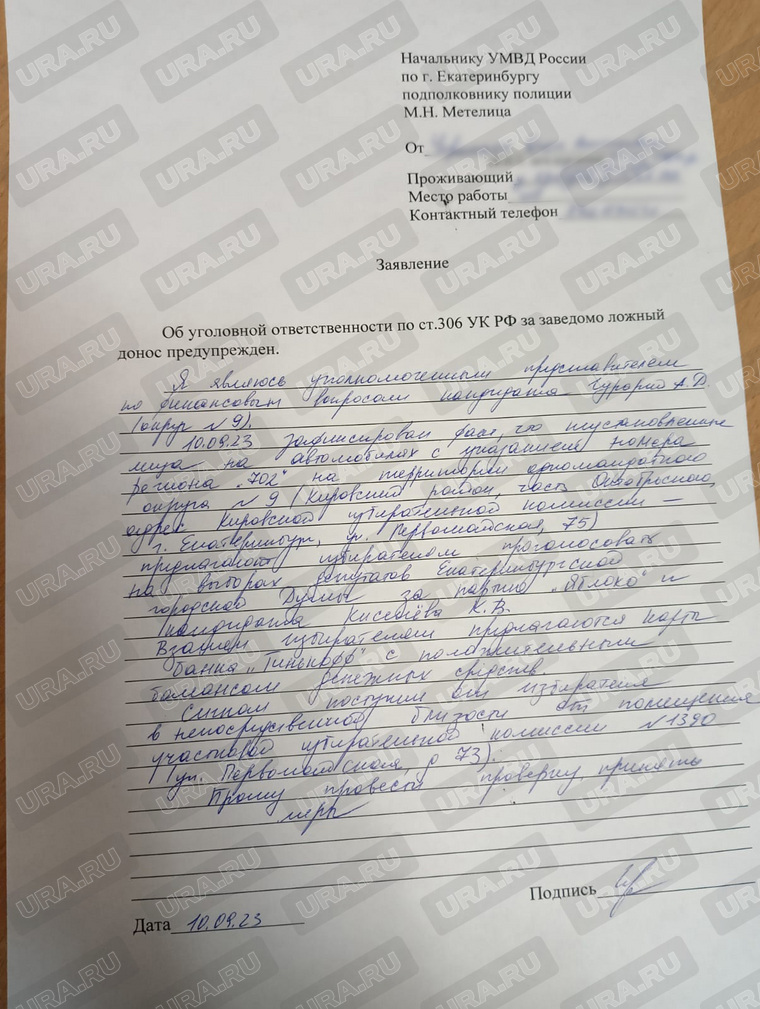 Начальнику УМВД России
по г. Екатеринбургу
подполковнику полиции
М.Н. Метелица
От
Проживающий
Место работы
Контактный телефон
Заявление
Об уголовной ответственности по ст.306 УК РФ за заведомо ложный
донос предупрежден.
Я являюсь уполномоченным представителем
по финансовым вопросам кандидата А.Д.
(округ №9).
10.09.23 зафиксирован факт, что неустановленные
лица на автомобилях с указанием номера
региона "702" на территории одномандатного
округа №9 (Кировский район, часть Октябрьского,
адрес Кировской избирательной комиссии –
г. Екатеринбург, ул. Первомайская, 75)
предлагают избирателям проголосовать
на выборах депутатов Екатеринбургской
городской Думы за партию "Яблоко" и
кандидата Киселёва К.В.
Взамен избирателям предлагаются карты
банка "Тинькофф" с положительным
балансом денежных средств.
Сигнал поступил от избирателя
в непосредственной близости от помещения
участковой избирательной комиссии №1390
(ул. Первомайская д 73).
Прошу провести проверку, принять
меры
Подпись
Дата 10.09.23
URA.RU